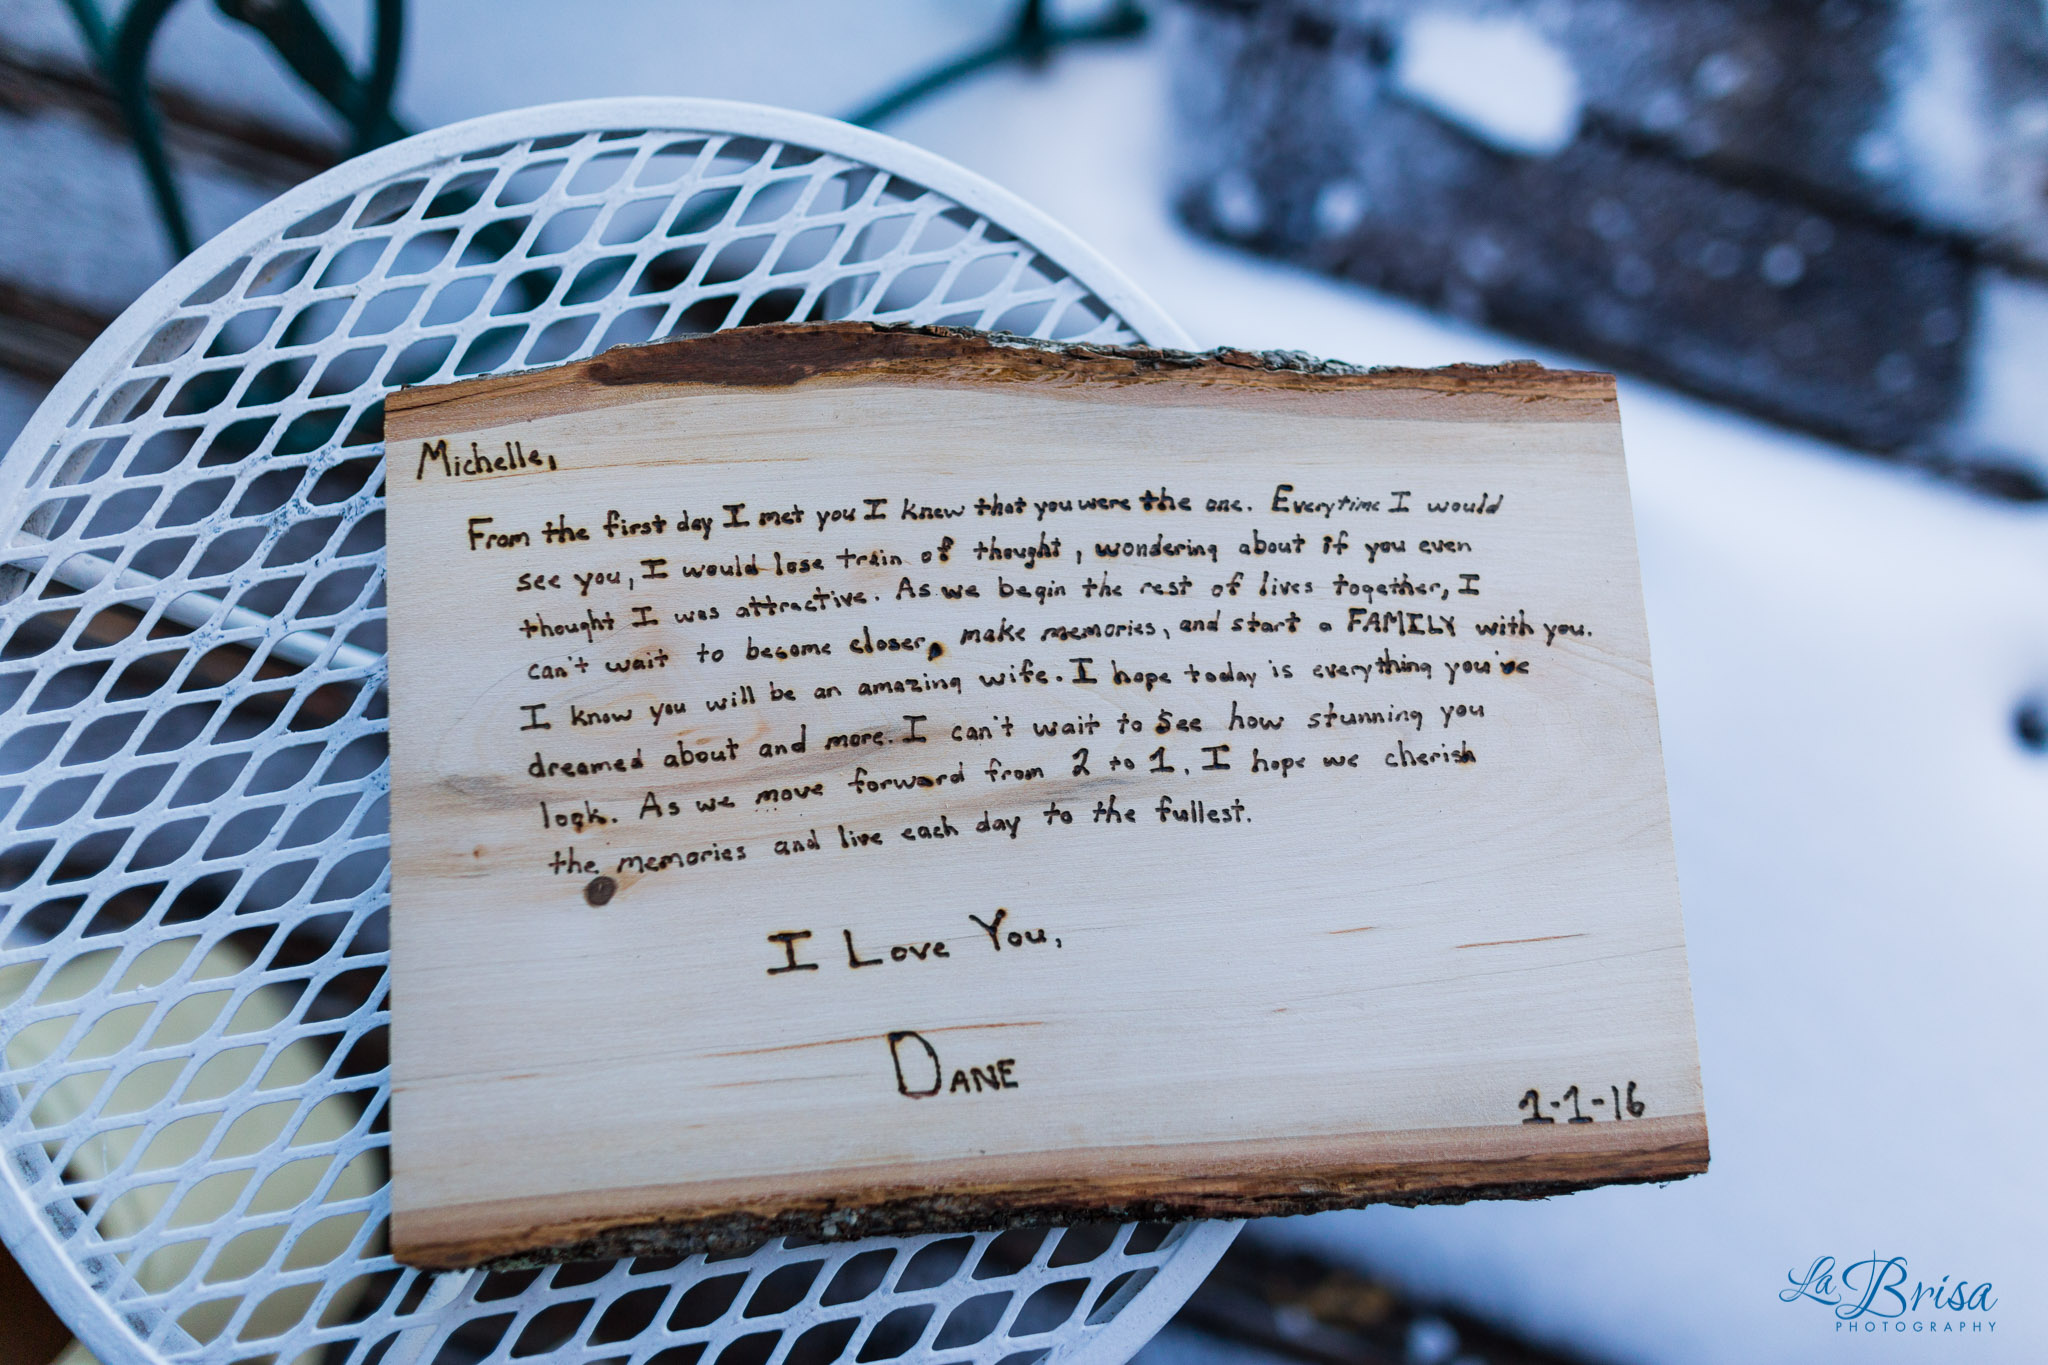 Michelle,
From the first day I met you I knew that you were the one. Everytime I would
see you, I would lose train of thought, wondering about if you even
thought I was attractive. As we begin the rest of lives together, I
can't wait to become closer, make memories, and start a FAMILY with you.
I know you will be an amazing wife. I hope today is everything you've
dreamed about and more. I can't wait to see how stunning you
look. As we move forward from 2 to 1, I hope we cherish
the memories and live each day to the fullest.
I Love You,
DANE
1-1-16
La Brisa
PHOTOGRAPHY